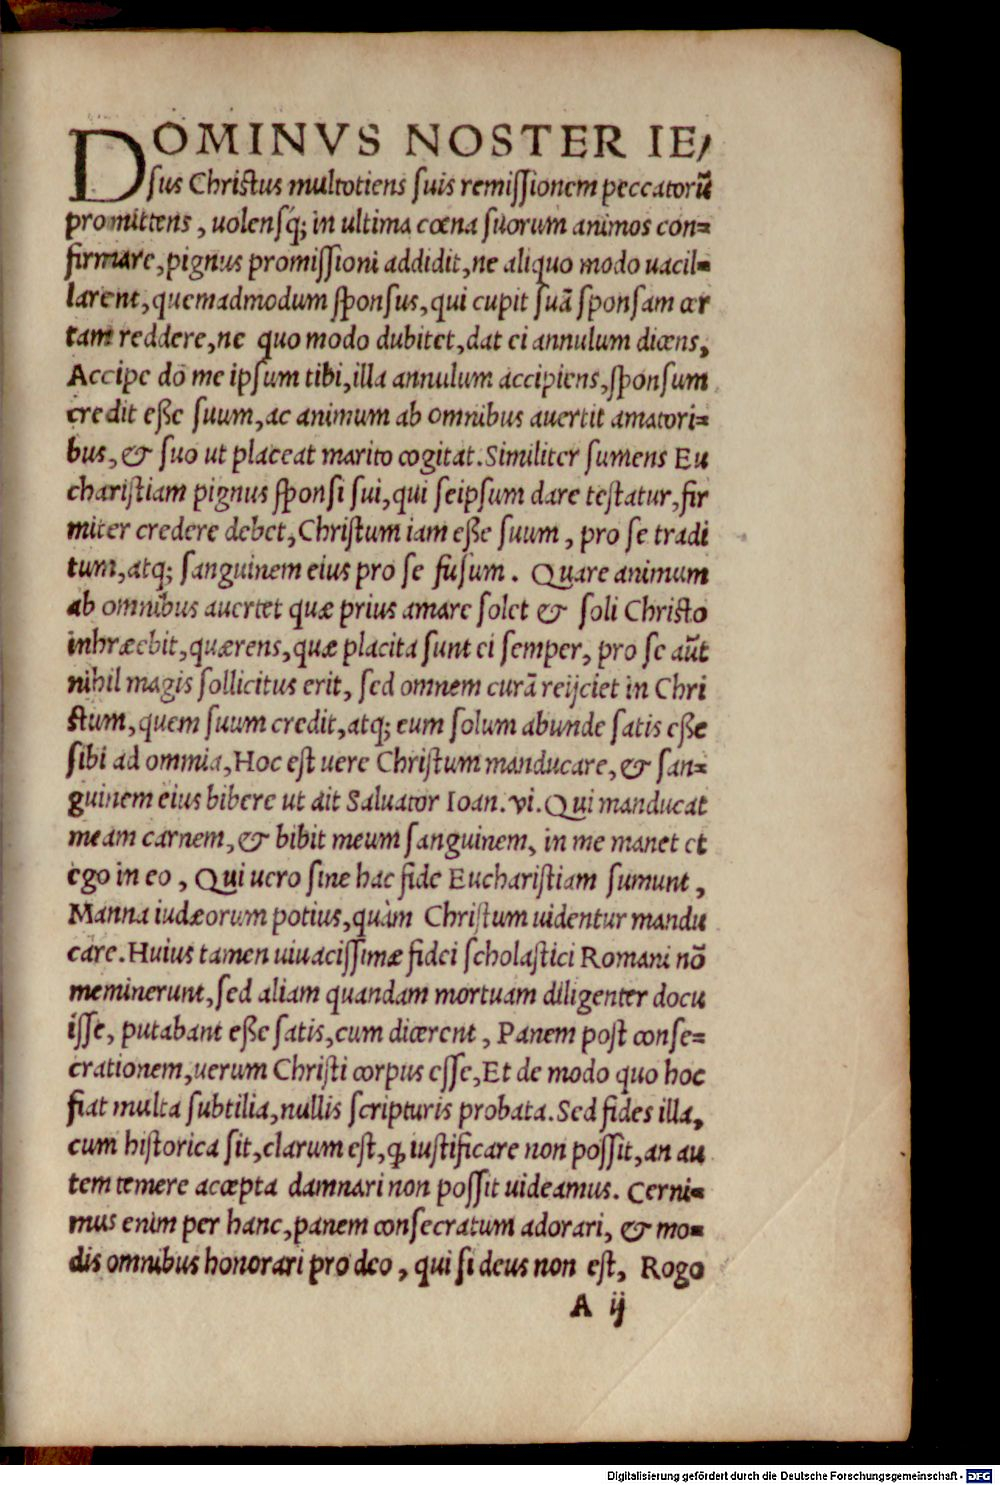 DOMINVS NOSTER IE/
ſus Chriſtus multotiens ſuis remiſſionem peccatorũ
promittens, uolenſq́; in ultima cœna ſuorum animos con=
firmare, pignus promiſſioni addidit, ne aliquo modo uacil=
larent, quemadmodum ſponſus, qui cupit ſuã ſponſam cer
tam reddere, ne quo modo dubitet, dat ei annulum dicens,
Accipe do me ipſum tibi, illa annulum accipiens, ſponſum
credit eße ſuum, ac animum ab omnibus auertit amatori=
bus, & ſuo ut placeat marito cogitat. Similiter ſumens Eu
chariſtiam pignus ſponſi ſui, qui ſeipſum dare teſtatur, fir
miter credere debet, Chriſtum iam eße ſuum, pro ſe tradi
tum, atq; ſanguinem eius pro ſe fuſum. Quare animum
ab omnibus auertet quæ prius amare ſolet & ſoli Chriſto
inhræebit, quærens, quæ placita ſunt ei ſemper, pro ſe aũt
nihil magis ſollicitus erit, ſed omnem curã reijciet in Chri
ſtum, quem ſuum credit, atq; eum ſolum abunde ſatis eße
ſibi ad ommia, Hoc eſt uere Chriſtum manducare, & ſan=
guinem eius bibere ut ait Saluator Ioan. vi. Qui manducat
meam carnem, & bibit meum ſanguinem, in me manet et
ego in eo, Qui uero ſine hac fide Euchariſtiam ſumunt,
Manna iudæorum potius, quàm Chriſtum uidentur mandu
care. Huius tamen uiuaciſſimæ fidei ſcholaſtici Romani nõ
meminerunt, ſed aliam quandam mortuam diligenter docu
iſſe, putabant eße ſatis, cum dicerent, Panem poſt conſe=
crationem, uerum Chriſti corpus eſſe, Et de modo quo hoc
fiat multa ſubtilia, nullis ſcripturis probata. Sed fides illa,
cum hiſtorica ſit, clarum eſt, ꝙ iuſtificare non poſſit, an au
tem temere accepta damnari non poſſit uideamus. Cerni=
mus enim per hanc, panem conſecratum adorari, & mo=
dis omnibus honorari pro deo, qui ſi deus non eſt, Rogo
A ij
Digitalisierung gefördert durch die Deutsche Forschungsgemeinschaft - DFG